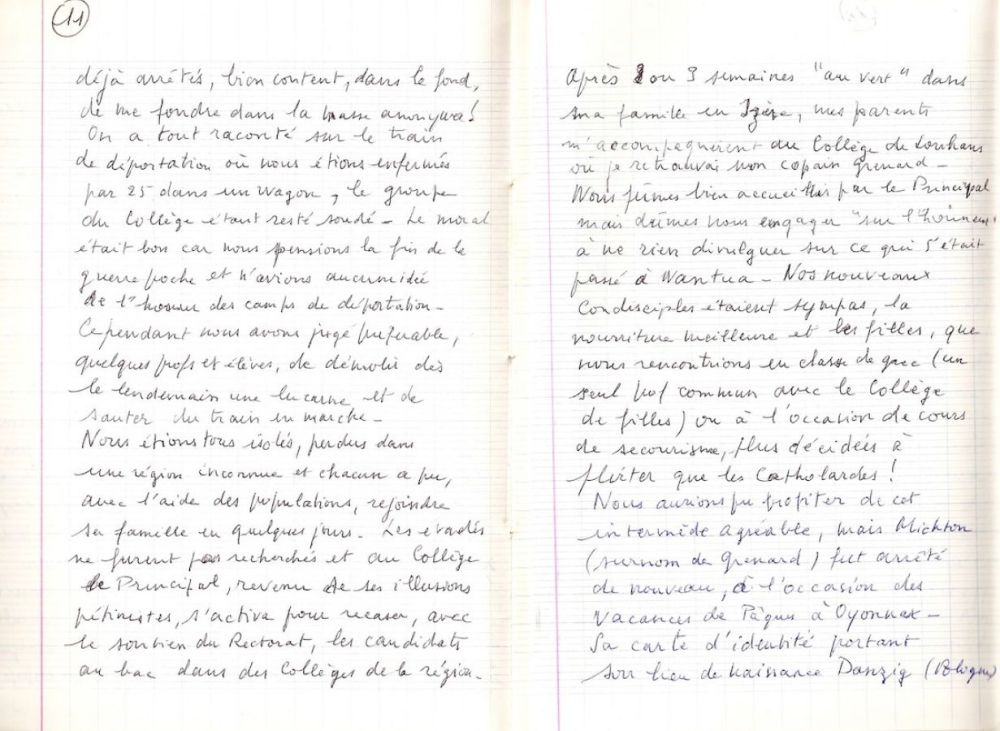 11
déjà arrêtés, bien content, dans le fond,
de me fondre dans la masse anonyme!
On a tout raconté sur le train
de déportation où nous étions enfermés
par 25 dans un wagon, le groupe
du Collège étant resté soudé - Le moral
était bon car nous pensions la fin de la
guerre poche et n'avions aucune idée
de l'horreur des camps de déportation -
Cependant nous avons jugé préférable,
quelques profs et élèves, de démolir dès
le lendemain une lucarne et de
sauter du train en marche -
Nous étions tous isolés, perdus dans
une région inconnue et chacun a pu,
avec l'aide des populations, rejoindre
sa famille en quelques jours - Les évadés
ne furent pas recherchés et au Collège
le Principal, revenu de ses illusions
pétinistes, s'activa pour recaser, avec
le soutien du Rectorat, les candidats
au bac dans des Collèges de la région -
Après 2 ou 3 semaines "au vert" dans
ma famille en Isère, mes parents
m'accompagnèrent au Collège de Louhans
où je retrouvai mon copain Grenard -
Nous fûmes bien accueillis par le Principal
mais dûmes nous engager "sur l'honneur"
à ne rien divulguer sur ce qui s'était
passé à Nantua - Nos nouveaux
condisciples étaient sympas, la
nourriture meilleure et les filles, que
nous rencontrions en classe de grec (un
seul prof commun avec le Collège
de filles) ou à l'occasion de cours
de secourisme, plus décidées à
flirter que les Catholardes!
Nous aurions pu profiter de cet
intermède agréable, mais Michton
(surnom de Grenard) fut arrêté
de nouveau, à l'occasion des
vacances de Pâques à Oyonnax -
Sa carte d'identité portant
son lieu de naissance Danzig (Pologne)